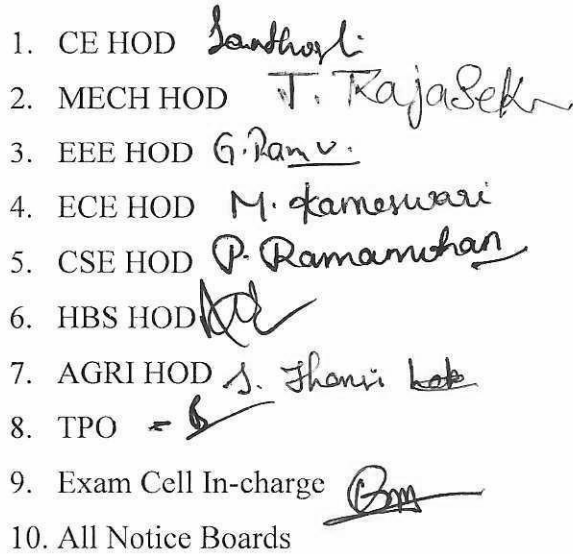 1. CE HOD Santhosh
2. MECH HOD T. RajaSek
3. EEE HOD G. Ram
4. ECE HOD M. Kameswari
5. CSE HOD P. Ramamohan
6. HBS HOD
7. AGRI HOD J. Jhansi
8. TPO
9. Exam Cell In-charge
10. All Notice Boards